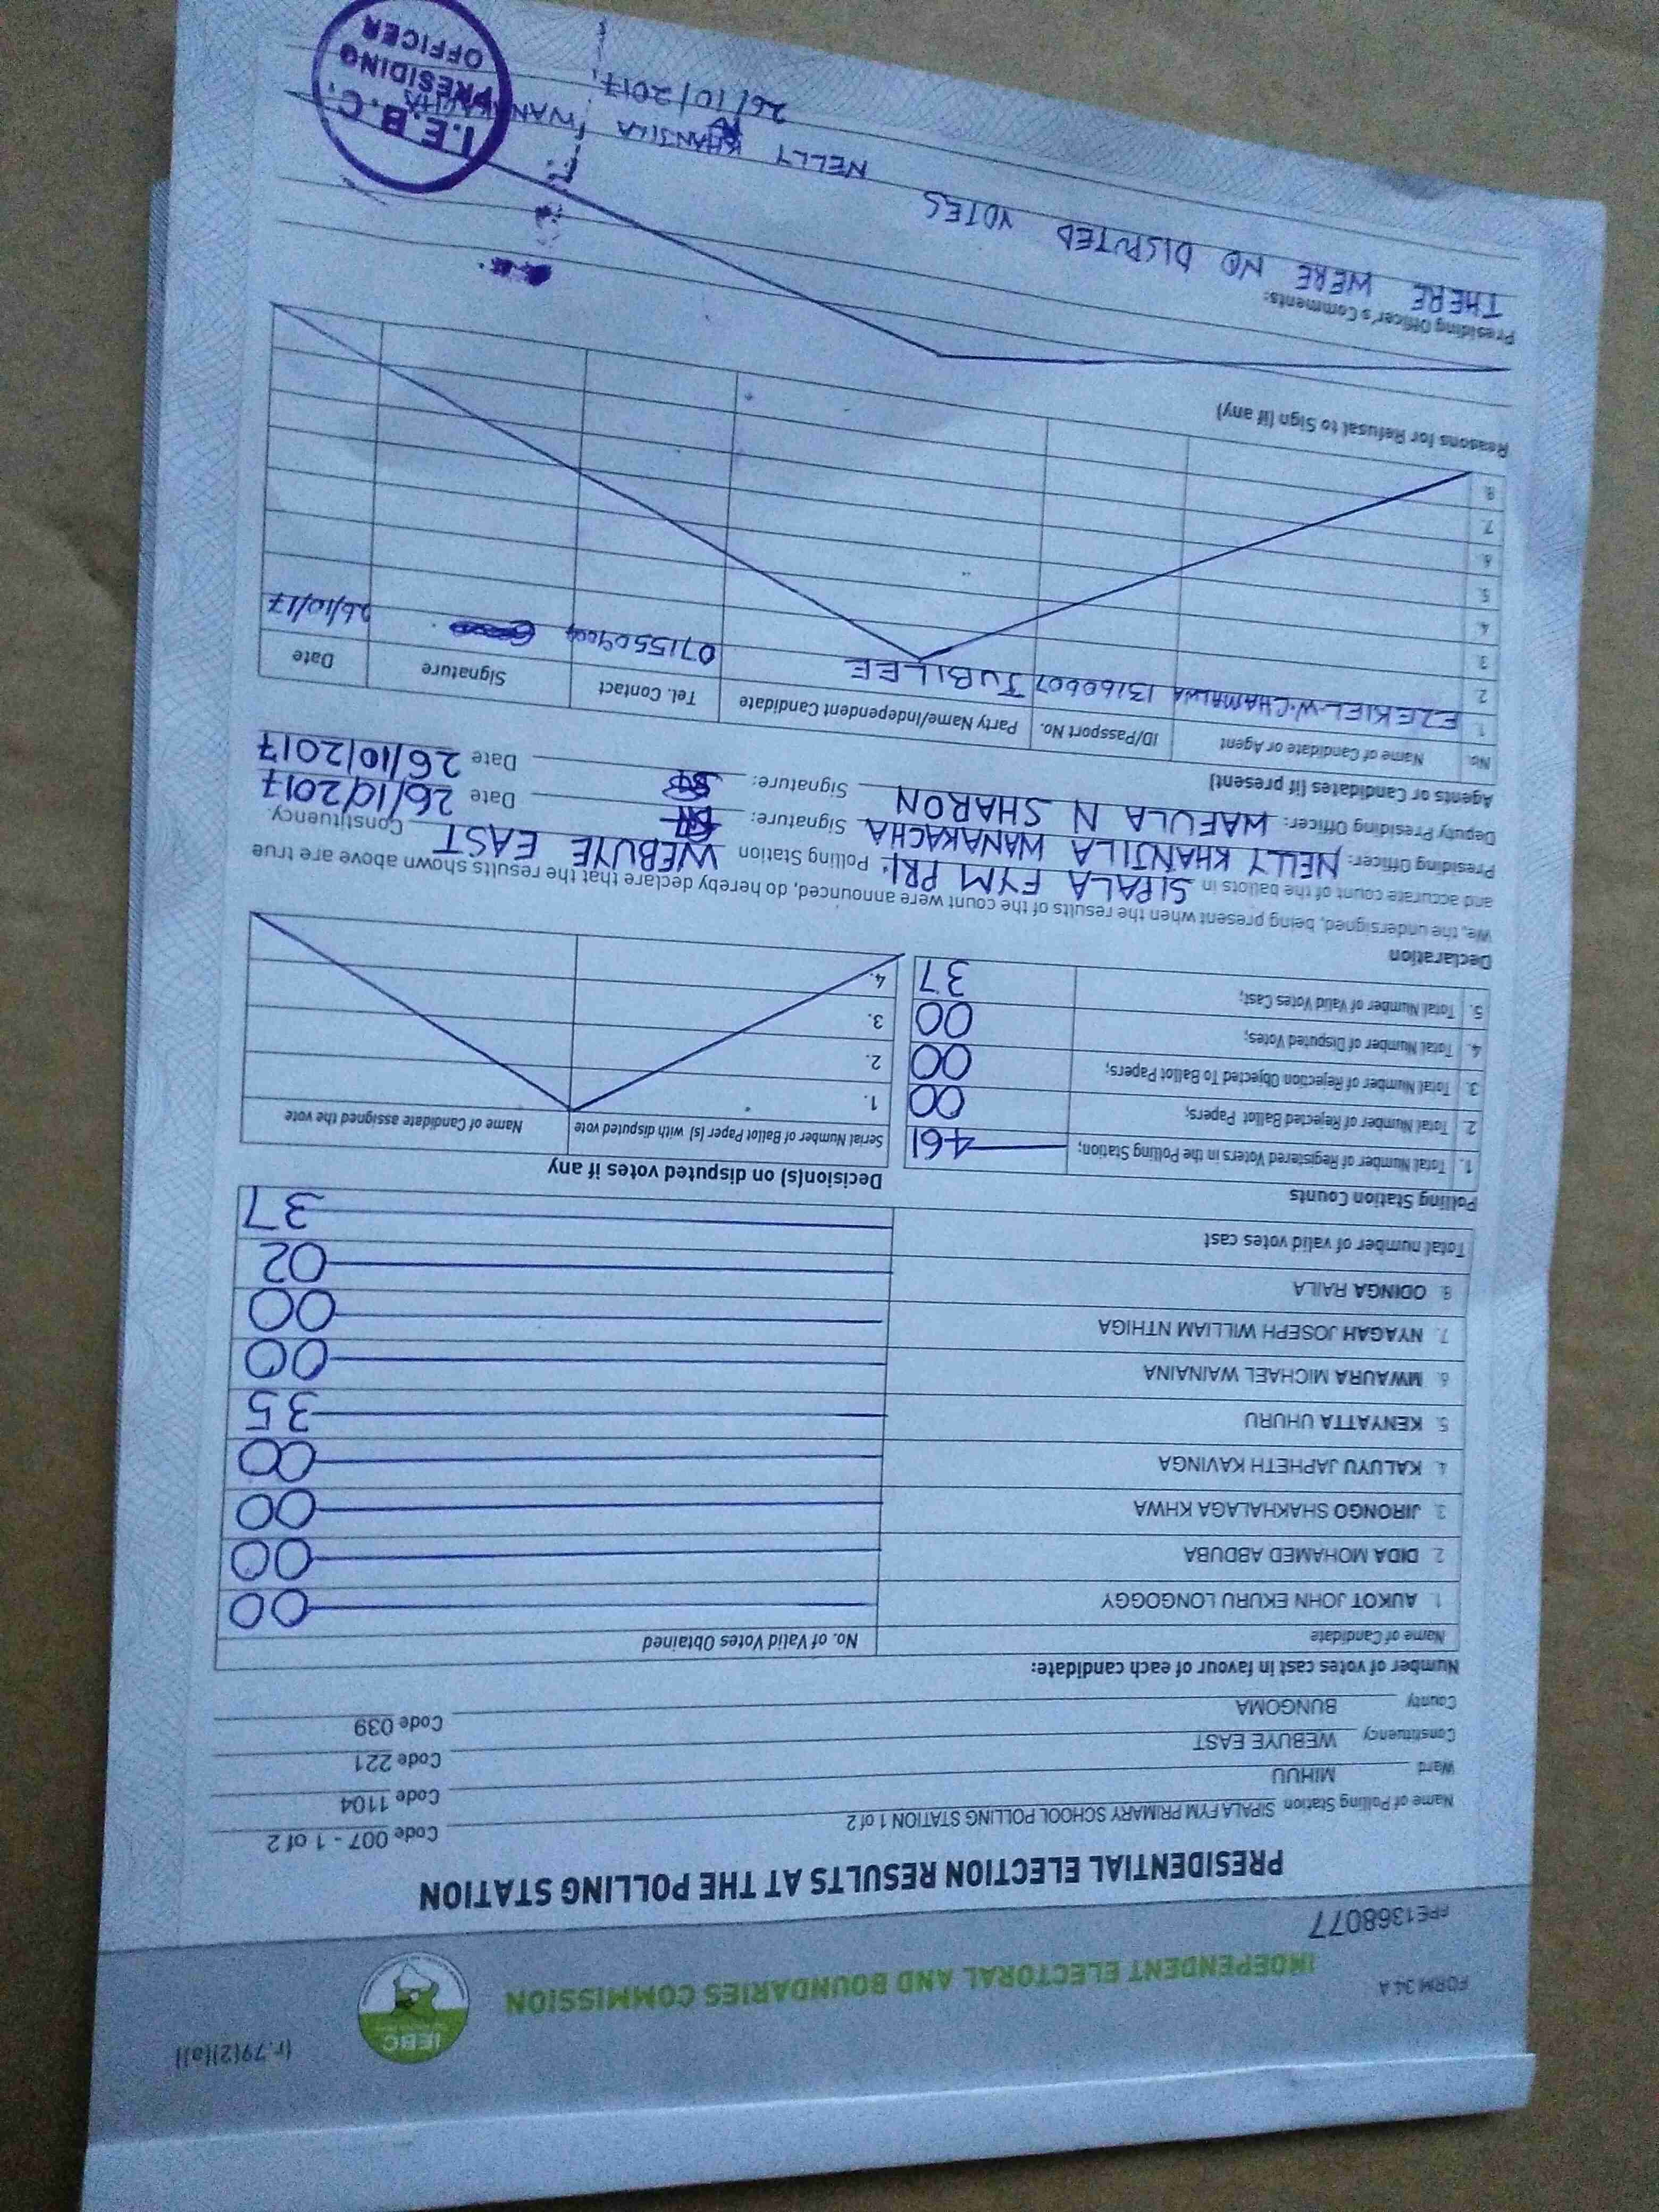 (r.79(2)(a))
FORM 34 A
IEBC
INDEPENDENT ELECTORAL AND BOUNDARIES COMMISSION
PPE1368077
PRESIDENTIAL ELECTION RESULTS AT THE POLLING STATION
Name of Polling Station SIPALA FYM PRIMARY SCHOOL POLLING STATION 1 of 2 Code 007 - 1 of 2
Ward MIHUU Code 1104
Constituency WEBUYE EAST Code 221
County BUNGOMA Code 039
Number of votes cast in favour of each candidate:
Name of Candidate No. of Valid Votes Obtained
1. AUKOT JOHN EKURU LONGOGGY 00
2. DIDA MOHAMED ABDUBA 00
3. JIRONGO SHAKHALAGA KHWA 00
4. KALUYU JAPHETH KAVINGA 00
5. KENYATTA UHURU 35
6. MWAURA MICHAEL WAINAINA 00
7. NYAGAH JOSEPH WILLIAM NTHIGA 00
8. ODINGA RAILA 02
Total number of valid votes cast 37
Polling Station Counts
1. Total Number of Registered Voters in the Polling Station; 461
2. Total Number of Rejected Ballot Papers; 00
3. Total Number of Rejection Objected To Ballot Papers; 00
4. Total Number of Disputed Votes; 00
5. Total Number of Valid Votes Cast; 37
Decision(s) on disputed votes if any
Serial Number of Ballot Paper (s) with disputed vote Name of Candidate assigned the vote
1.
2.
3.
4.
Declaration
We, the undersigned, being present when the results of the count were announced, do hereby declare that the results shown above are true
and accurate count of the ballots in SIPALA FYM PRI. Polling Station WEBUYE EAST Constituency.
Presiding Officer: NELLY KHANJILA WANAKACHA Signature: Date 26/10/2017
Deputy Presiding Officer: WAFULA N SHARON Signature: Date 26/10/2017
Agents or Candidates (if present)
No. Name of Candidate or Agent ID/Passport No. Party Name/Independent Candidate Tel. Contact Signature Date
1 EZEKIEL W. CHAMALWA 13160607 JUBILEE 26/10/17
2
3
4.
5.
6.
7.
8.
Reasons for Refusal to Sign (if any)
Presiding Officer's Comments:
THERE WERE NO DISPUTED VOTES
NELLY KHANJILA WANAKACHA
26/10/2017.
I.E.B.C.
PRESIDING
OFFICER